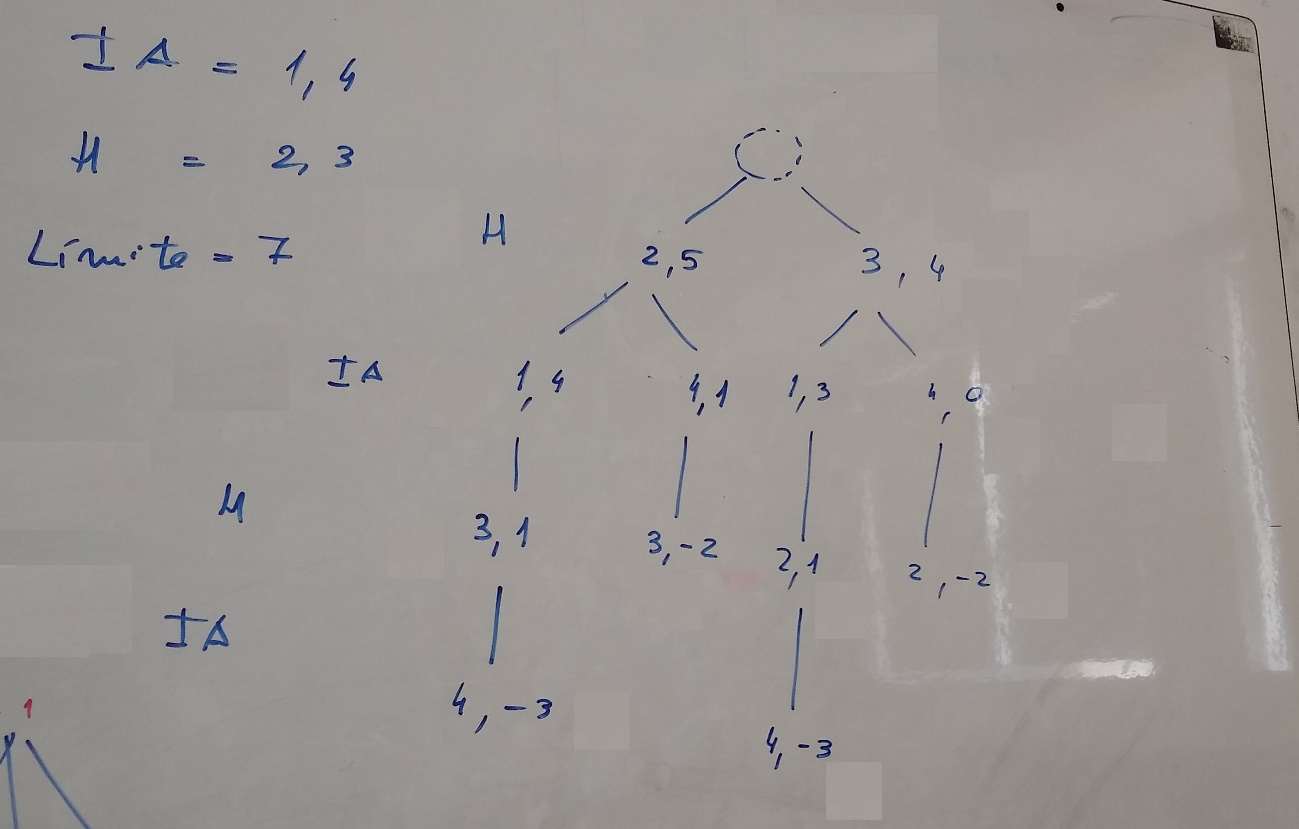 IA = 1, 4
H = 2, 3
Límite = 7
H
2,5
3, 4
IA
1, 4
4,1
1,3
4, 0
H
3, 1
3, -2
2,1
2, -2
IA
4, -3
4, -3
1